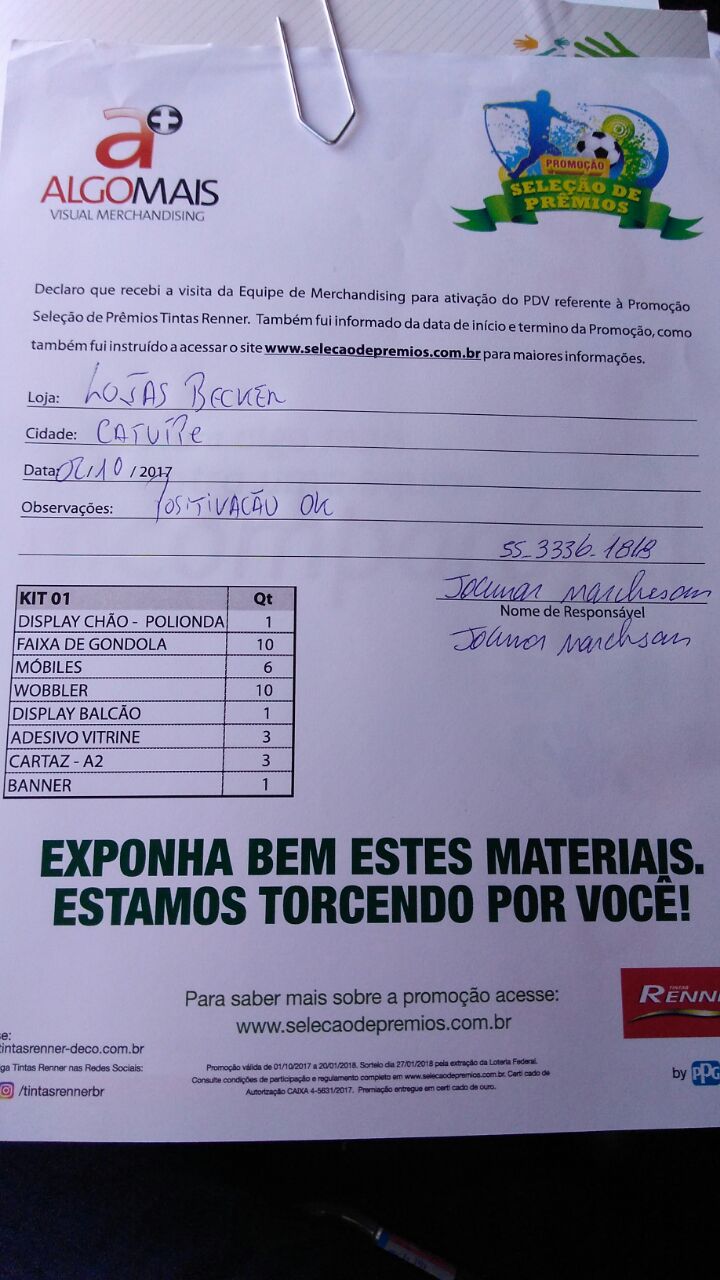 a+
ALGOMAIS
VISUAL MERCHANDISING
PROMOÇÃO
SELEÇÃO DE
PRÊMIOS
Declaro que recebi a visita da Equipe de Merchandising para ativação do PDV referente à Promoção
Seleção de Prêmios Tintas Renner. Também fui informado da data de início e termino da Promoção, como
também fui instruído a acessar o site www.selecaodepremios.com.br para maiores informações.
Loja: LOJAS BECKER
Cidade: CATUÍPE
Data: 02/10 / 2017
Observações: POSITIVAÇÃO OK
55-3336-1818
Nome de Responsável
KIT 01 Qt
DISPLAY CHÃO - POLIONDA 1
FAIXA DE GONDOLA 10
MÓBILES 6
WOBBLER 10
DISPLAY BALCÃO 1
ADESIVO VITRINE 3
CARTAZ - A2 3
BANNER 1
EXPONHA BEM ESTES MATERIAIS.
ESTAMOS TORCENDO POR VOCÊ!
Para saber mais sobre a promoção acesse:
www.selecaodepremios.com.br
TINTAS
RENN
se:
tintasrenner-deco.com.br
ga Tintas Renner nas Redes Sociais:
/tintasrennerbr
Promoção válida de 01/10/2017 a 20/01/2018. Sorteio dia 27/01/2018 pela extração da Loteria Federal.
Consulte condições de participação e regulamento completo em www.selecaodepremios.com.br. Certi cado de
Autorização CAIXA 4-5631/2017. Premiação entregue em certi cado de ouro.
by PPG